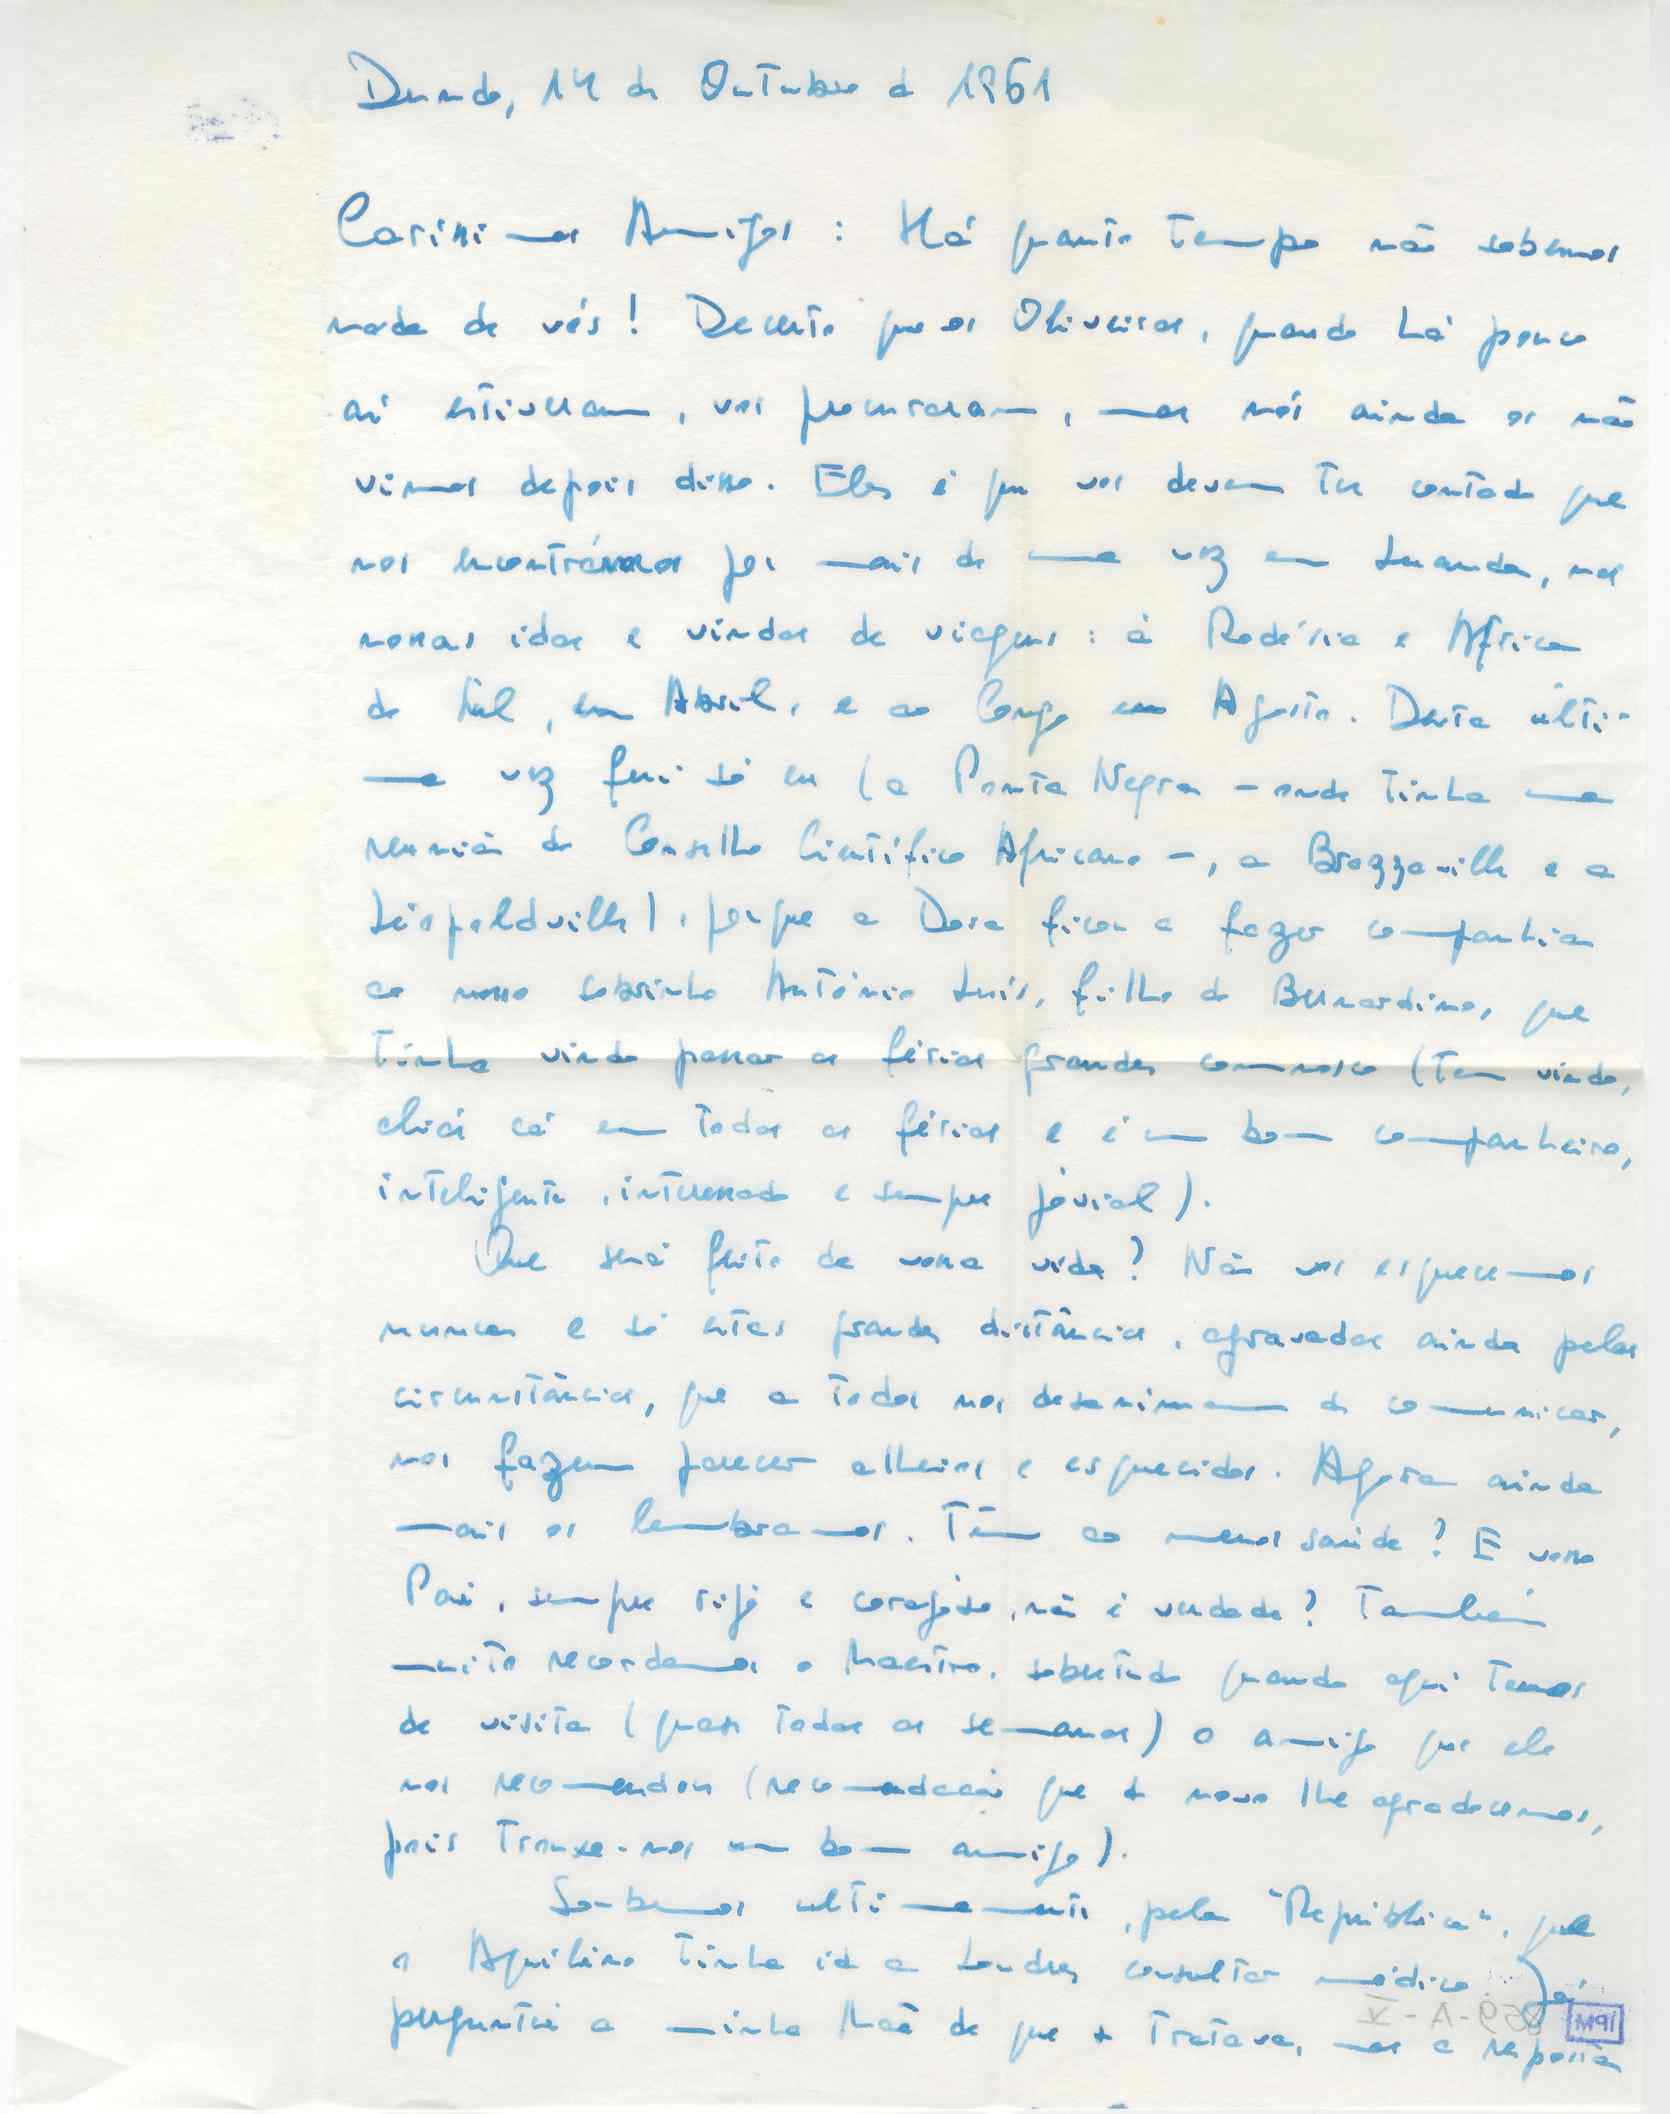 Dundo, 14 de Outubro de 1961
Caríssimos Amigos: Há quanto tempo não sabemos
nada de vós! Decerto que os Oliveiras, quando há pouco
aí estiveram, vos procuraram, mas nós ainda os não
vimos depois disso. Eles é que vos devem ter contado que
nos encontrámos por mais de uma vez em Luanda, nas
nossas idas e vindas de viagens: à Rodésia e África
do Sul, em Abril, e ao Congo em Agosto. Desta últi-
ma vez fui só eu (a Ponta Negra – onde tinha uma
reunião do Conselho Científico Africano –, a Brazzaville e a
Léopoldville), porque a Dora ficou a fazer companhia
ao nosso sobrinho António Luís, filho do Bernardino, que
tinha vindo passar as férias grandes connosco (tem vindo,
aliás cá em todas as férias e é um bom companheiro,
inteligente, interessado e sempre jóvial).
Que será feito da vossa vida? Não vos esquecemos
nunca e só estas grandes distâncias, agravadas ainda pelas
circunstâncias, que a todos nos desanimam de comunicar,
nos fazem parecer alheios e esquecidos. Agora ainda
mais os lembramos. Têm ao menos saúde? E vosso
Pai, sempre rijo e corajoso, não é verdade? Também
muito recordamos o Maestro, sobretudo quando aqui temos
de visita (quasi todas as semanas) o amigo que ele
nos recomendou (recomendação que de novo lhe agradecemos,
pois trouxe-nos um bom amigo).
Soubemos ultimamente, pela "República", que
o Aquilino tinha ido a Londres consultar médico. Já
perguntei a minha Mãe de que se tratava, mas a resposta
859-A-V
IPM